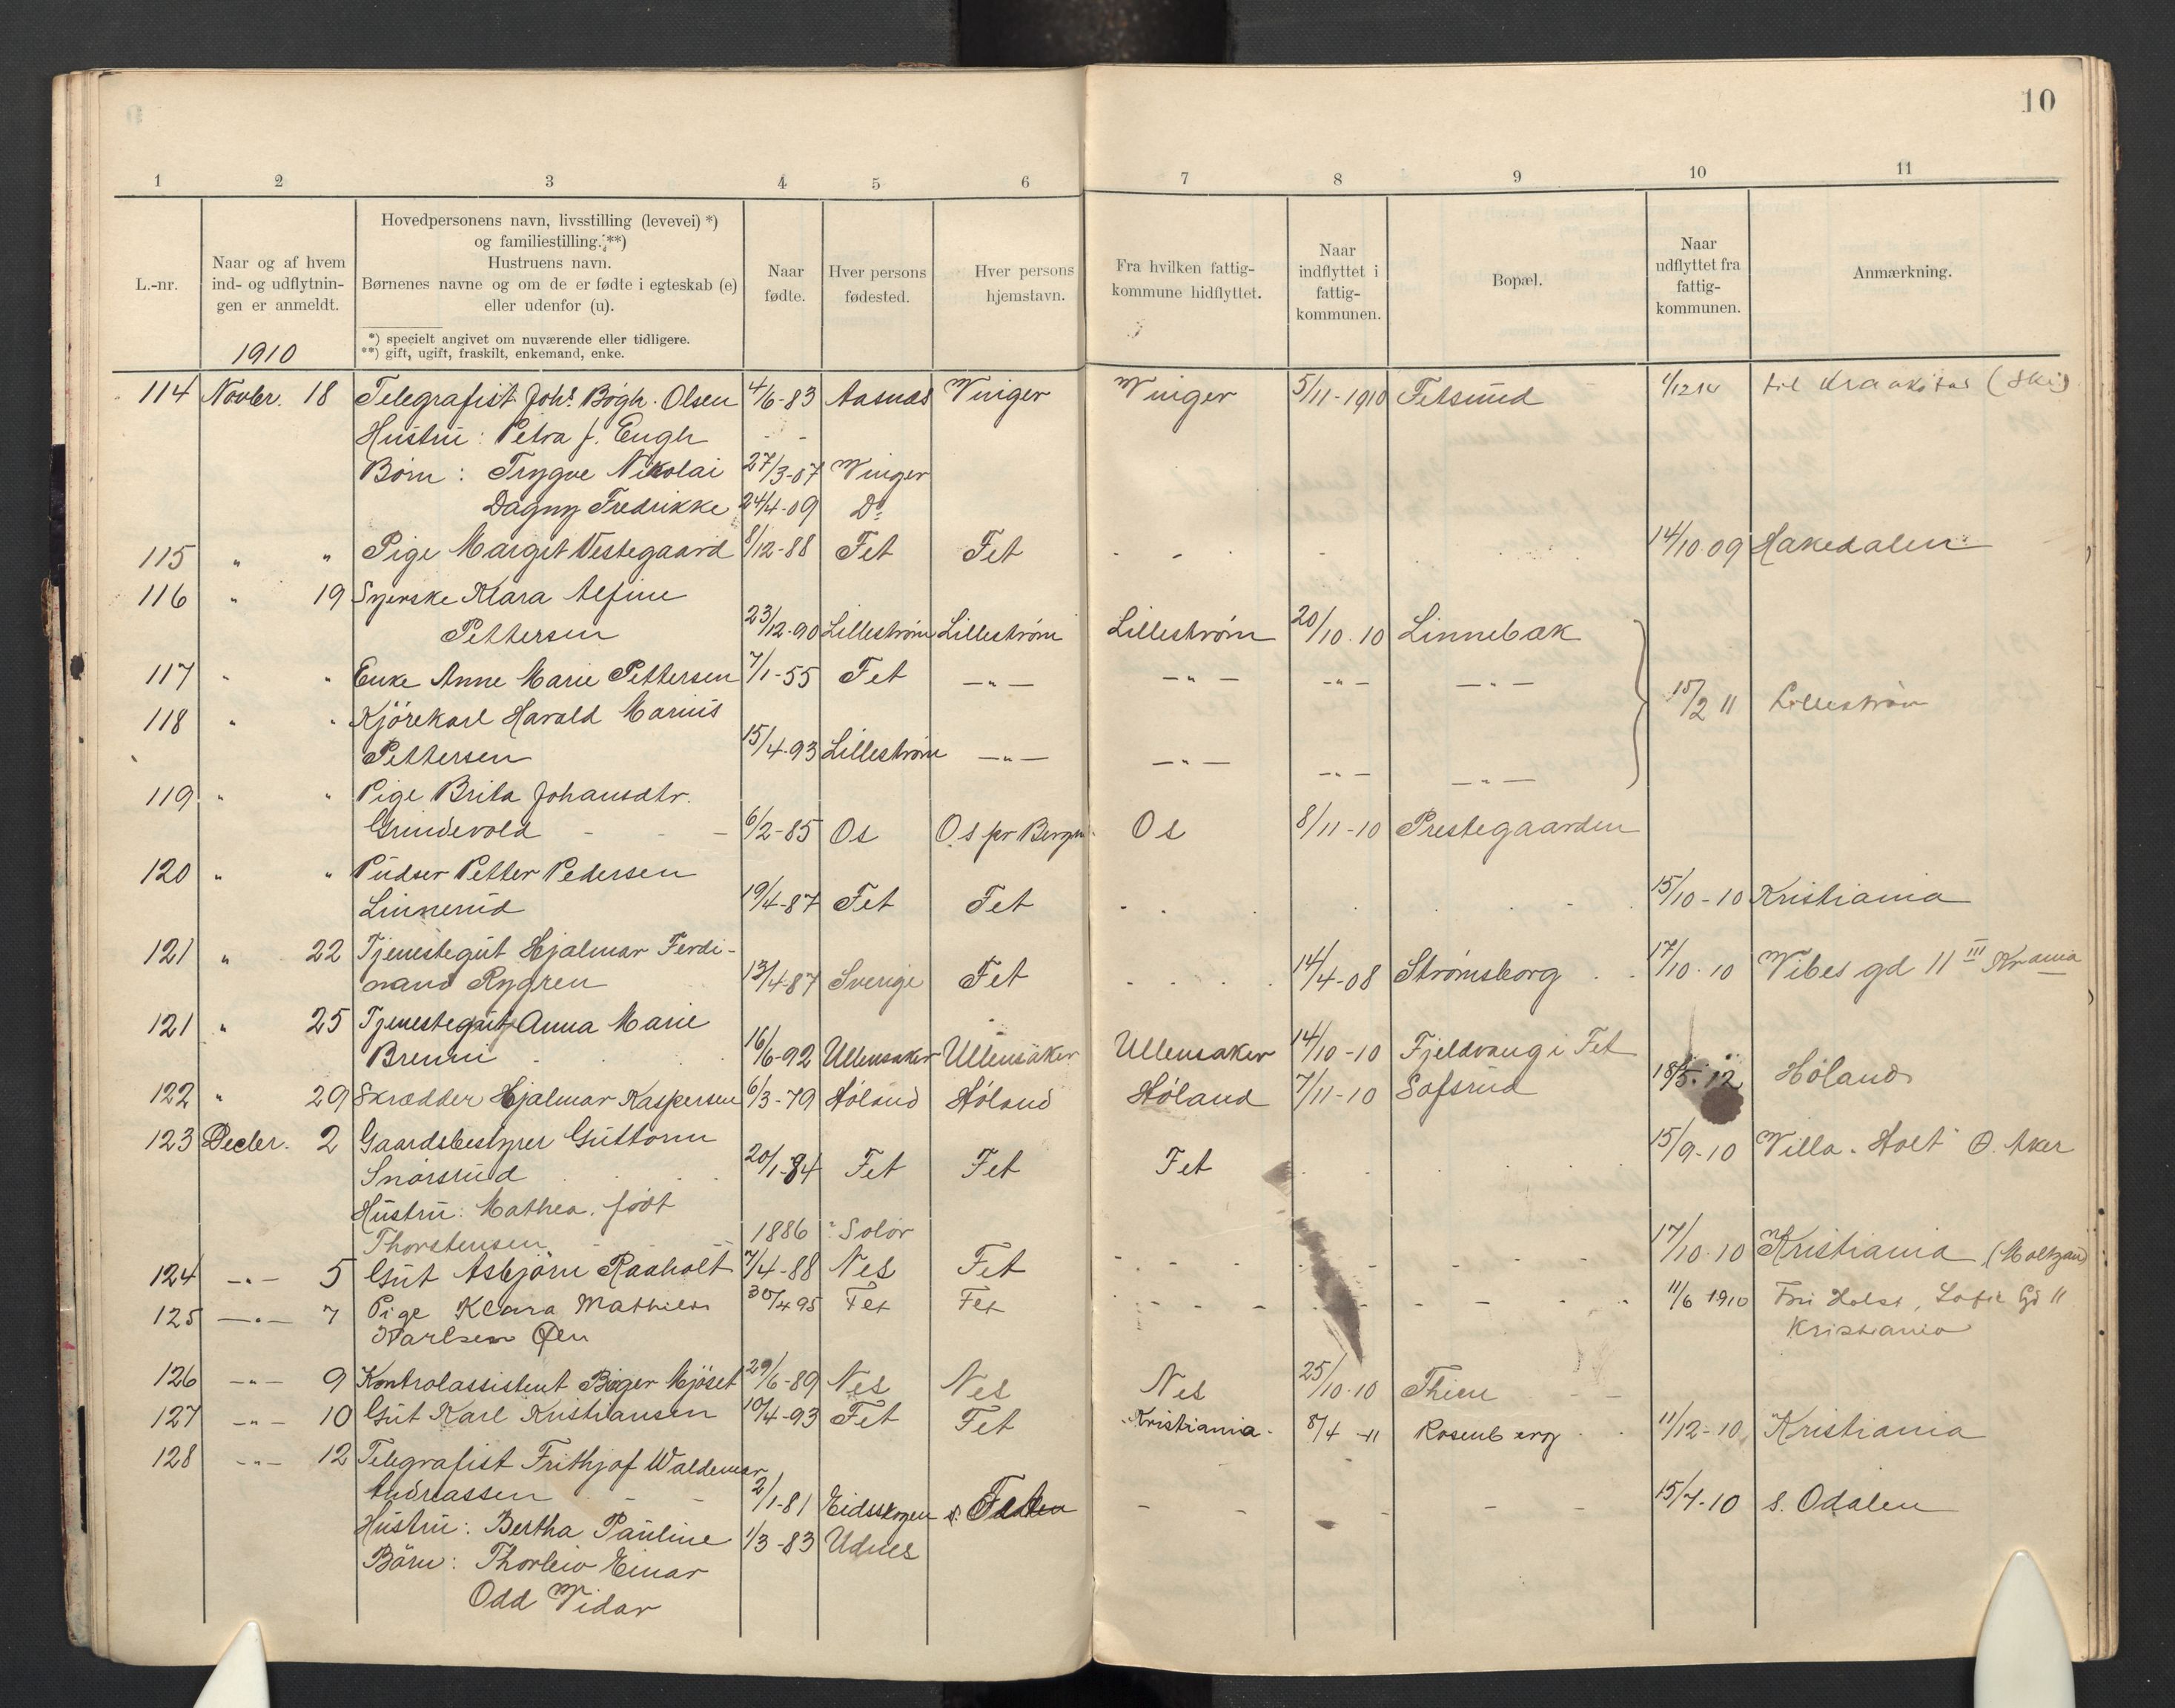 10
1 2 3 4 5 6 7 8 9 10 11
L.-nr.
Naar og af hvem
ind- og udflytnin-
gen er anmeldt.
1910
Hovedpersonens navn, livsstilling (levevei) *)
og familiestilling. **)
Hustruens navn.
Børnenes navne og om de er fødte i egteskab (e)
eller udenfor (u).
*) specielt angivet om nuværende eller tidligere.
**) gift, ugift, fraskilt, enkemand, enke.
Naar
fødte.
Hver persons
fødested.
Hver persons
hjemstavn.
Fra hvilken fattig-
kommune hidflyttet.
Naar
indflyttet i
fattig-
kommunen.
Bopæl.
Naar
udflyttet fra
fattig-
kommunen.
Anmærkning.
114 Novbr. 18 Telegrafist Johs. Bøgh. Olsen 4/6-83 Aasnæs Vinger Vinger 5/11-1910 Fetsund til (Ski)
Hustru: Petra f. Engh - -
Børn: Trygve Nikolai 27/3-07 Vinger
Dagny Fredrikke 24/4-09 Do
115 " " Pige Margit Vestegaard 8/12-88 Fet Fet - - - 14/10 09 Hakedalen
116 " 19 Syerske Klara Alfine
Pettersen 23/12-90 Lillestrøm Lillestrøm Lillestrøm 20/10.10 Linnebæk
117 " " Enke Anne Marie Pettersen 7/1-55 Fet —"— —"— —"— —"—
118 " " Kjörekarl Harald Marius 15/2 11 Lillestrøm
Pettersen 15/4-93 Lillestrøm —"— —"— —"— —"—
119 " " Pige Brita Johansdtr.
Grindevold - - - 6/2-85 Os Os pr Bergen Os 8/11-10 Prestegaarden
120 " " Pudser Petter Pedersen
Linnerud 19/4-87 Fet Fet - - - 15/10-10 Kristiania
121 " 22 Tjenestegut Hjalmar Ferdi-
nand Rygren 13/4-87 Sverige Fet - - - 14/4-08 Strømsborg 17/10.10 Vibes gd 11 III Krania
121 " 25 Tjenestegut Anna Marie
Brenni 16/6-92 Ullensaker Ullensaker Ullensaker 14/10-10 Fjeldvang i Fet
122 " 29 Skrædder Hjalmar Kaspersen 6/3-79 Høland Høland Høland 7/11-10 Sofsrud 18/5.12 Høland
123 Decbr. 2 Gaardsbestyrer Guttorm
Snarsrud 20/1-84 Fet Fet Fet - - 15/9-10 Villa "Holt" Ø. Aker
Hustru: Mathea, født
Thorstensen 1886 Solør
124 —"— 5 Gut Asbjørn Raaholt 7/4-88 Nes Fet - - - 17/10.10 Kristiania
125 —"— 7 Pige Klara Mathilde 30/4 95 Fet Fet - - - 11/6 1910 Fru Holst, Gd 11
Karlsen Øen Kristiania
126 —"— 9 Kontrolassistent Birger Mjöset 29/6-89 Nes Nes Nes 25/10.10 Thien
127 —"— 10 Gut Karl Kristiansen 19/4-93 Fet Fet Kristiania 8/4 -11 Rosenberg 11/12-10 Kristiania
128 —"— 12 Telegrafist Frithjof Waldemar
Andreassen - - 2/1-81 Eidsskogen - - - 15/7-10 s. Odalen
Hustru: Bertha Pauline 1/3-83 Udnes
Börn: Thorleiv Einar
Odd Vidar